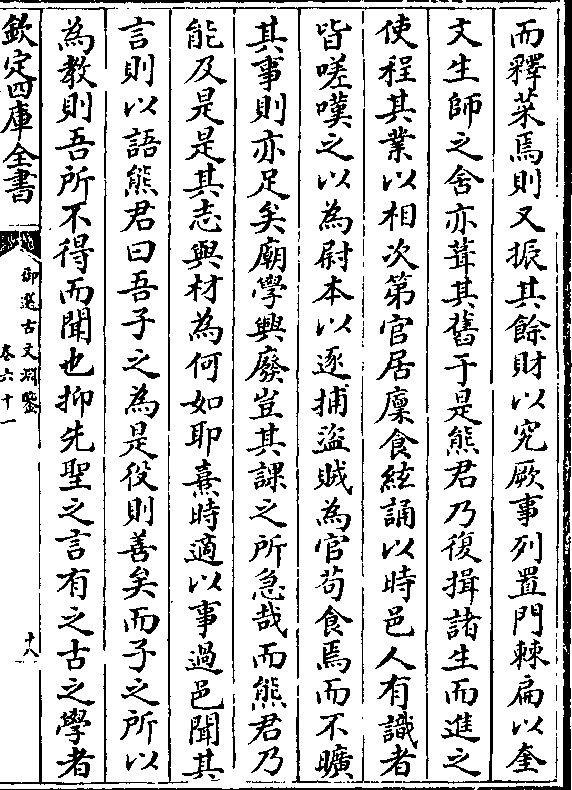 而釋菜焉則又振其餘財以究厥事列置門棘扁以奎
文生師之舍亦葺其舊于是熊君乃復揖諸生而進之
使程其業以相次第官居廩食絃誦以時邑人有識者
皆嗟嘆之以為尉本以逐捕盜賊為官苟食焉而不曠
其事則亦足矣廟學興廢豈其課之所急哉而熊君乃
能及是是其志與材為何如耶熹時適以事過邑聞其
言則以語熊君曰吾子之為是役則善矣而子之所以
為教則吾所不得而聞也抑先聖之言有之古之學者
欽定四庫全書
御選古文淵鑒
卷六十一
十八